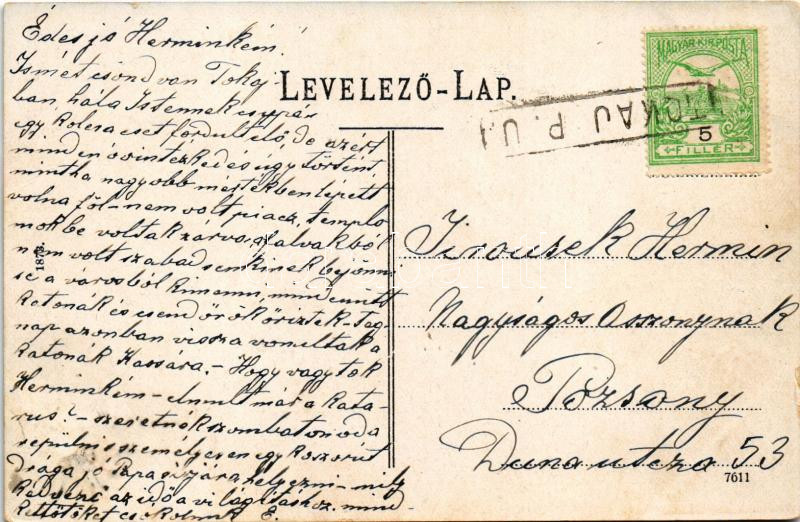 Édes jó Herminkém!
Ismét csönd van Tokaj
ban, hála Istennek csupán
egy kolera eset fordult elő de azért
minden óvintézkedés úgy történt
mintha nagyobb mértékben lépett
volna föl - nem volt piacz, templo
mok be voltak zárva, falvakból
nem volt szabad senkinek bejönni
se a városból kimenni, mindenütt
katonák és csendőrök őriztek - Teg
nap azonban vissza vonultak a
katonák Kassára. - Hogy vagytok
Herminkém - elmult már a kata
rus? - szeretnék szombaton oda
repülni s személyesen egy koszorut
drága jó Apa sirjára helyezni - mily
kedvező az idő a világitáshoz. mind
kettőtöket csókolunk E.
1873.
LEVELEZŐ-LAP.
MAGYAR KIR. POSTA
5
FILLÉR
TOKAJ P. U.
Jirousek Hermin
Nagyságos Asszonynak
Pozsony
Duna utcza 53
7611